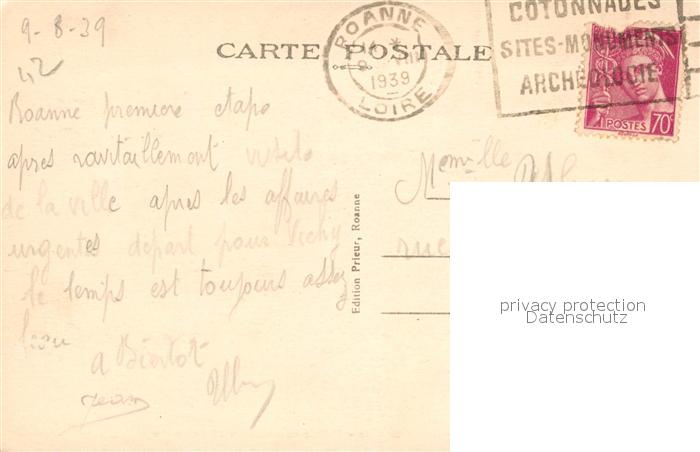 9-8-39
42
CARTE POSTALE
ROANNE
1939
LOIRE
COTONNADES
SITES-MONUMENTS
ARCHEOLOGIE
POSTES 70c
Roanne première etape
apres ravitaillement visite
de la ville apres les affaires
urgentes départ pour Vichy
le temps est toujours assez
beau
a Bientot
Jean
Edition Prieur, Roanne
rue
privacy protection
Datenschutz